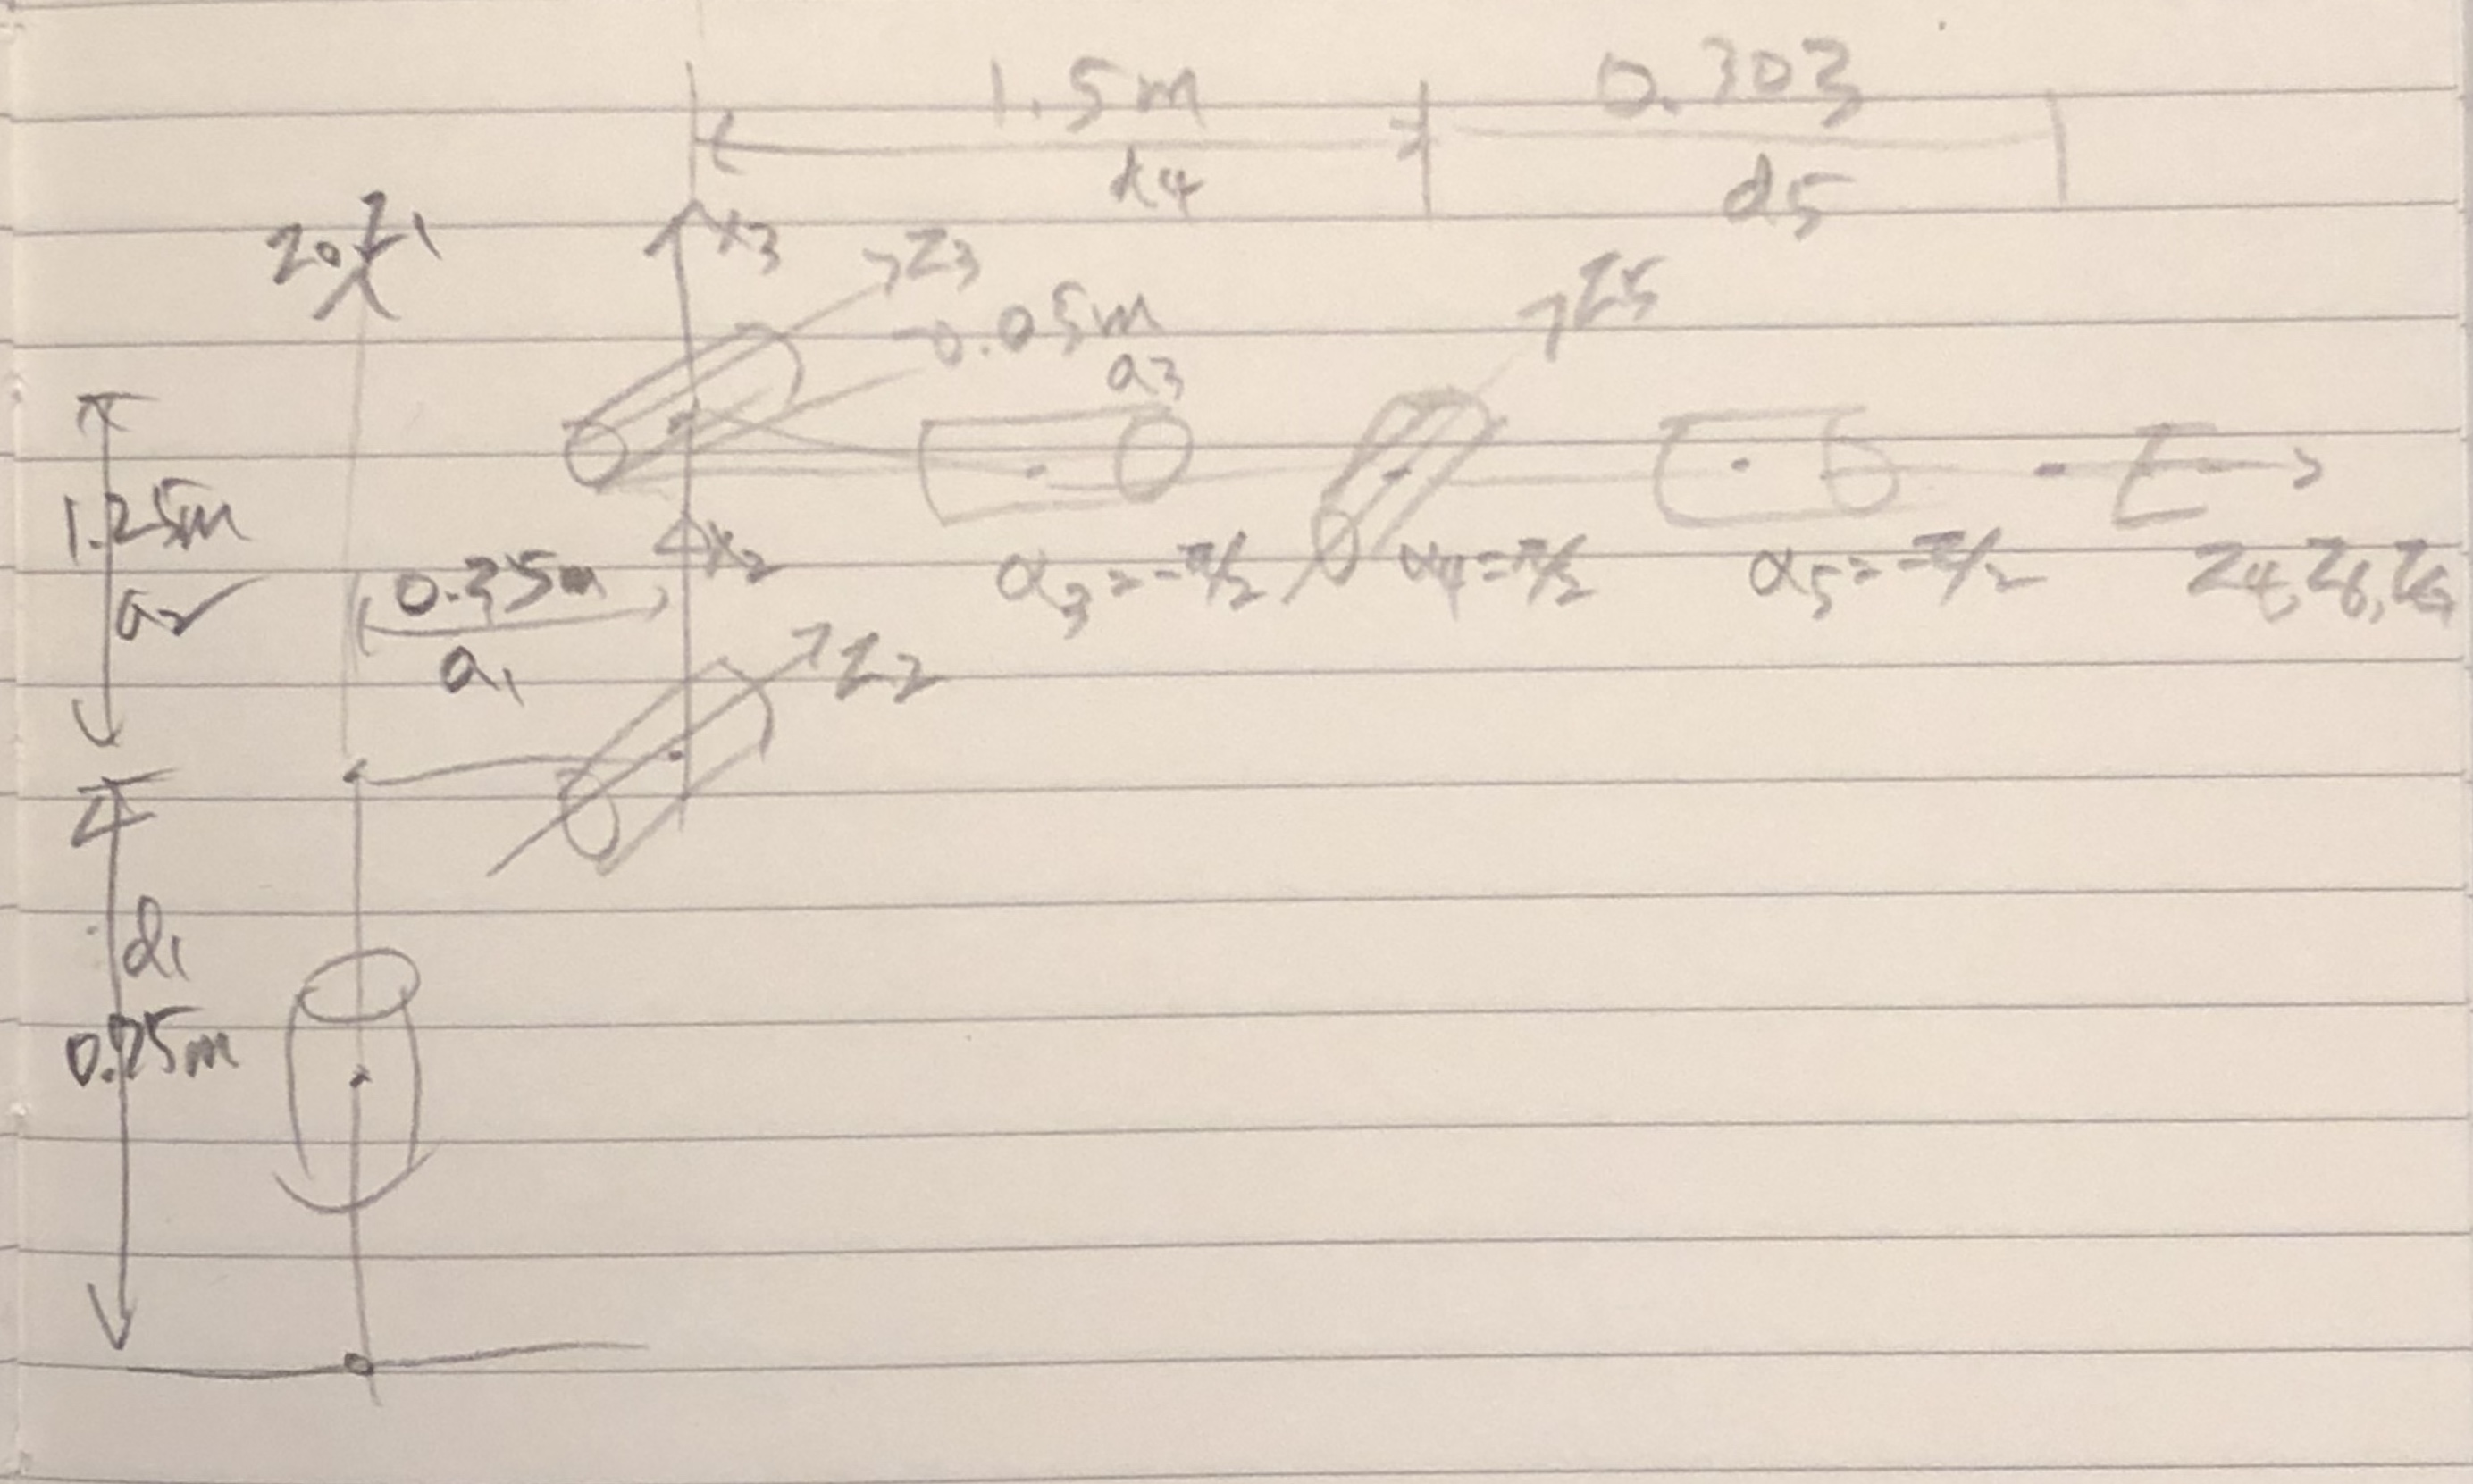 1.5m
0.303
d4
d5
Z0 Z1
X3
Z3
Z5
-0.05m
a3
1.25m
a2
X2
0.35m
a1
α3=-π/2
α4=π/2
α5=-π/2
Z4, Z6, ZG
Z2
d1
0.75m